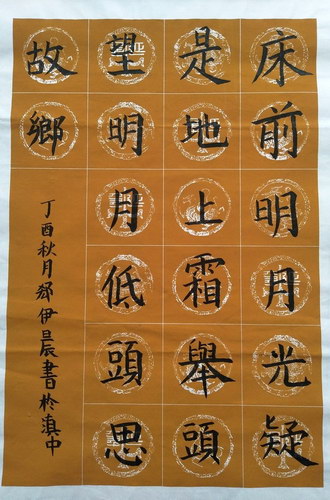 床前明月光疑
是地上霜舉頭
望明月低頭思
故鄉
丁酉秋月郄伊辰書於滇中